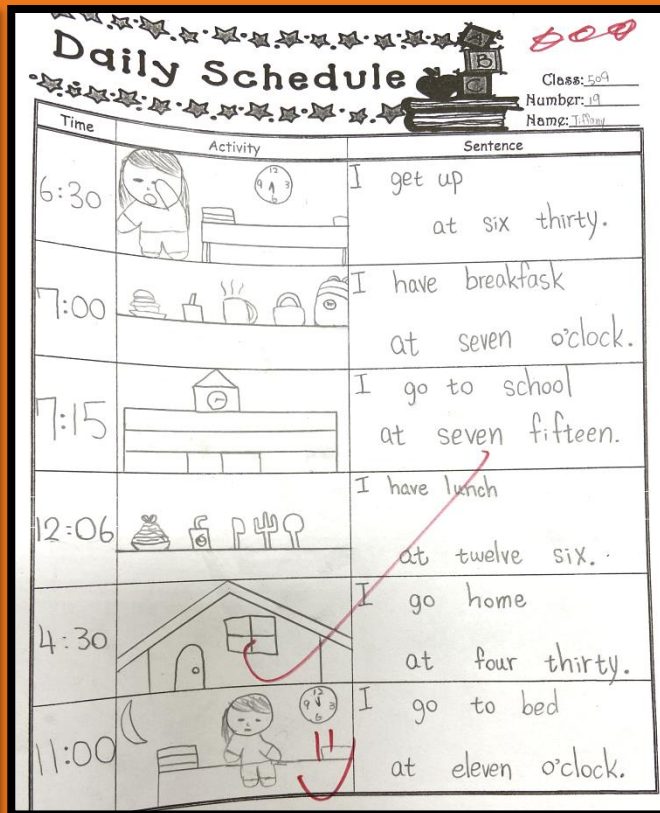 Daily Schedule
A
B
C
Class: 509
Number: 19
Name: Tiffany
Time
Activity
Sentence
6:30
12
9
3
6
I get up
at six thirty.
7:00
I have breakfask
at seven o'clock.
7:15
I go to school
at seven fifteen.
12:06
I have lunch
at twelve six.
4:30
I go home
at four thirty.
11:00
12
9
3
6
I go to bed
at eleven o'clock.